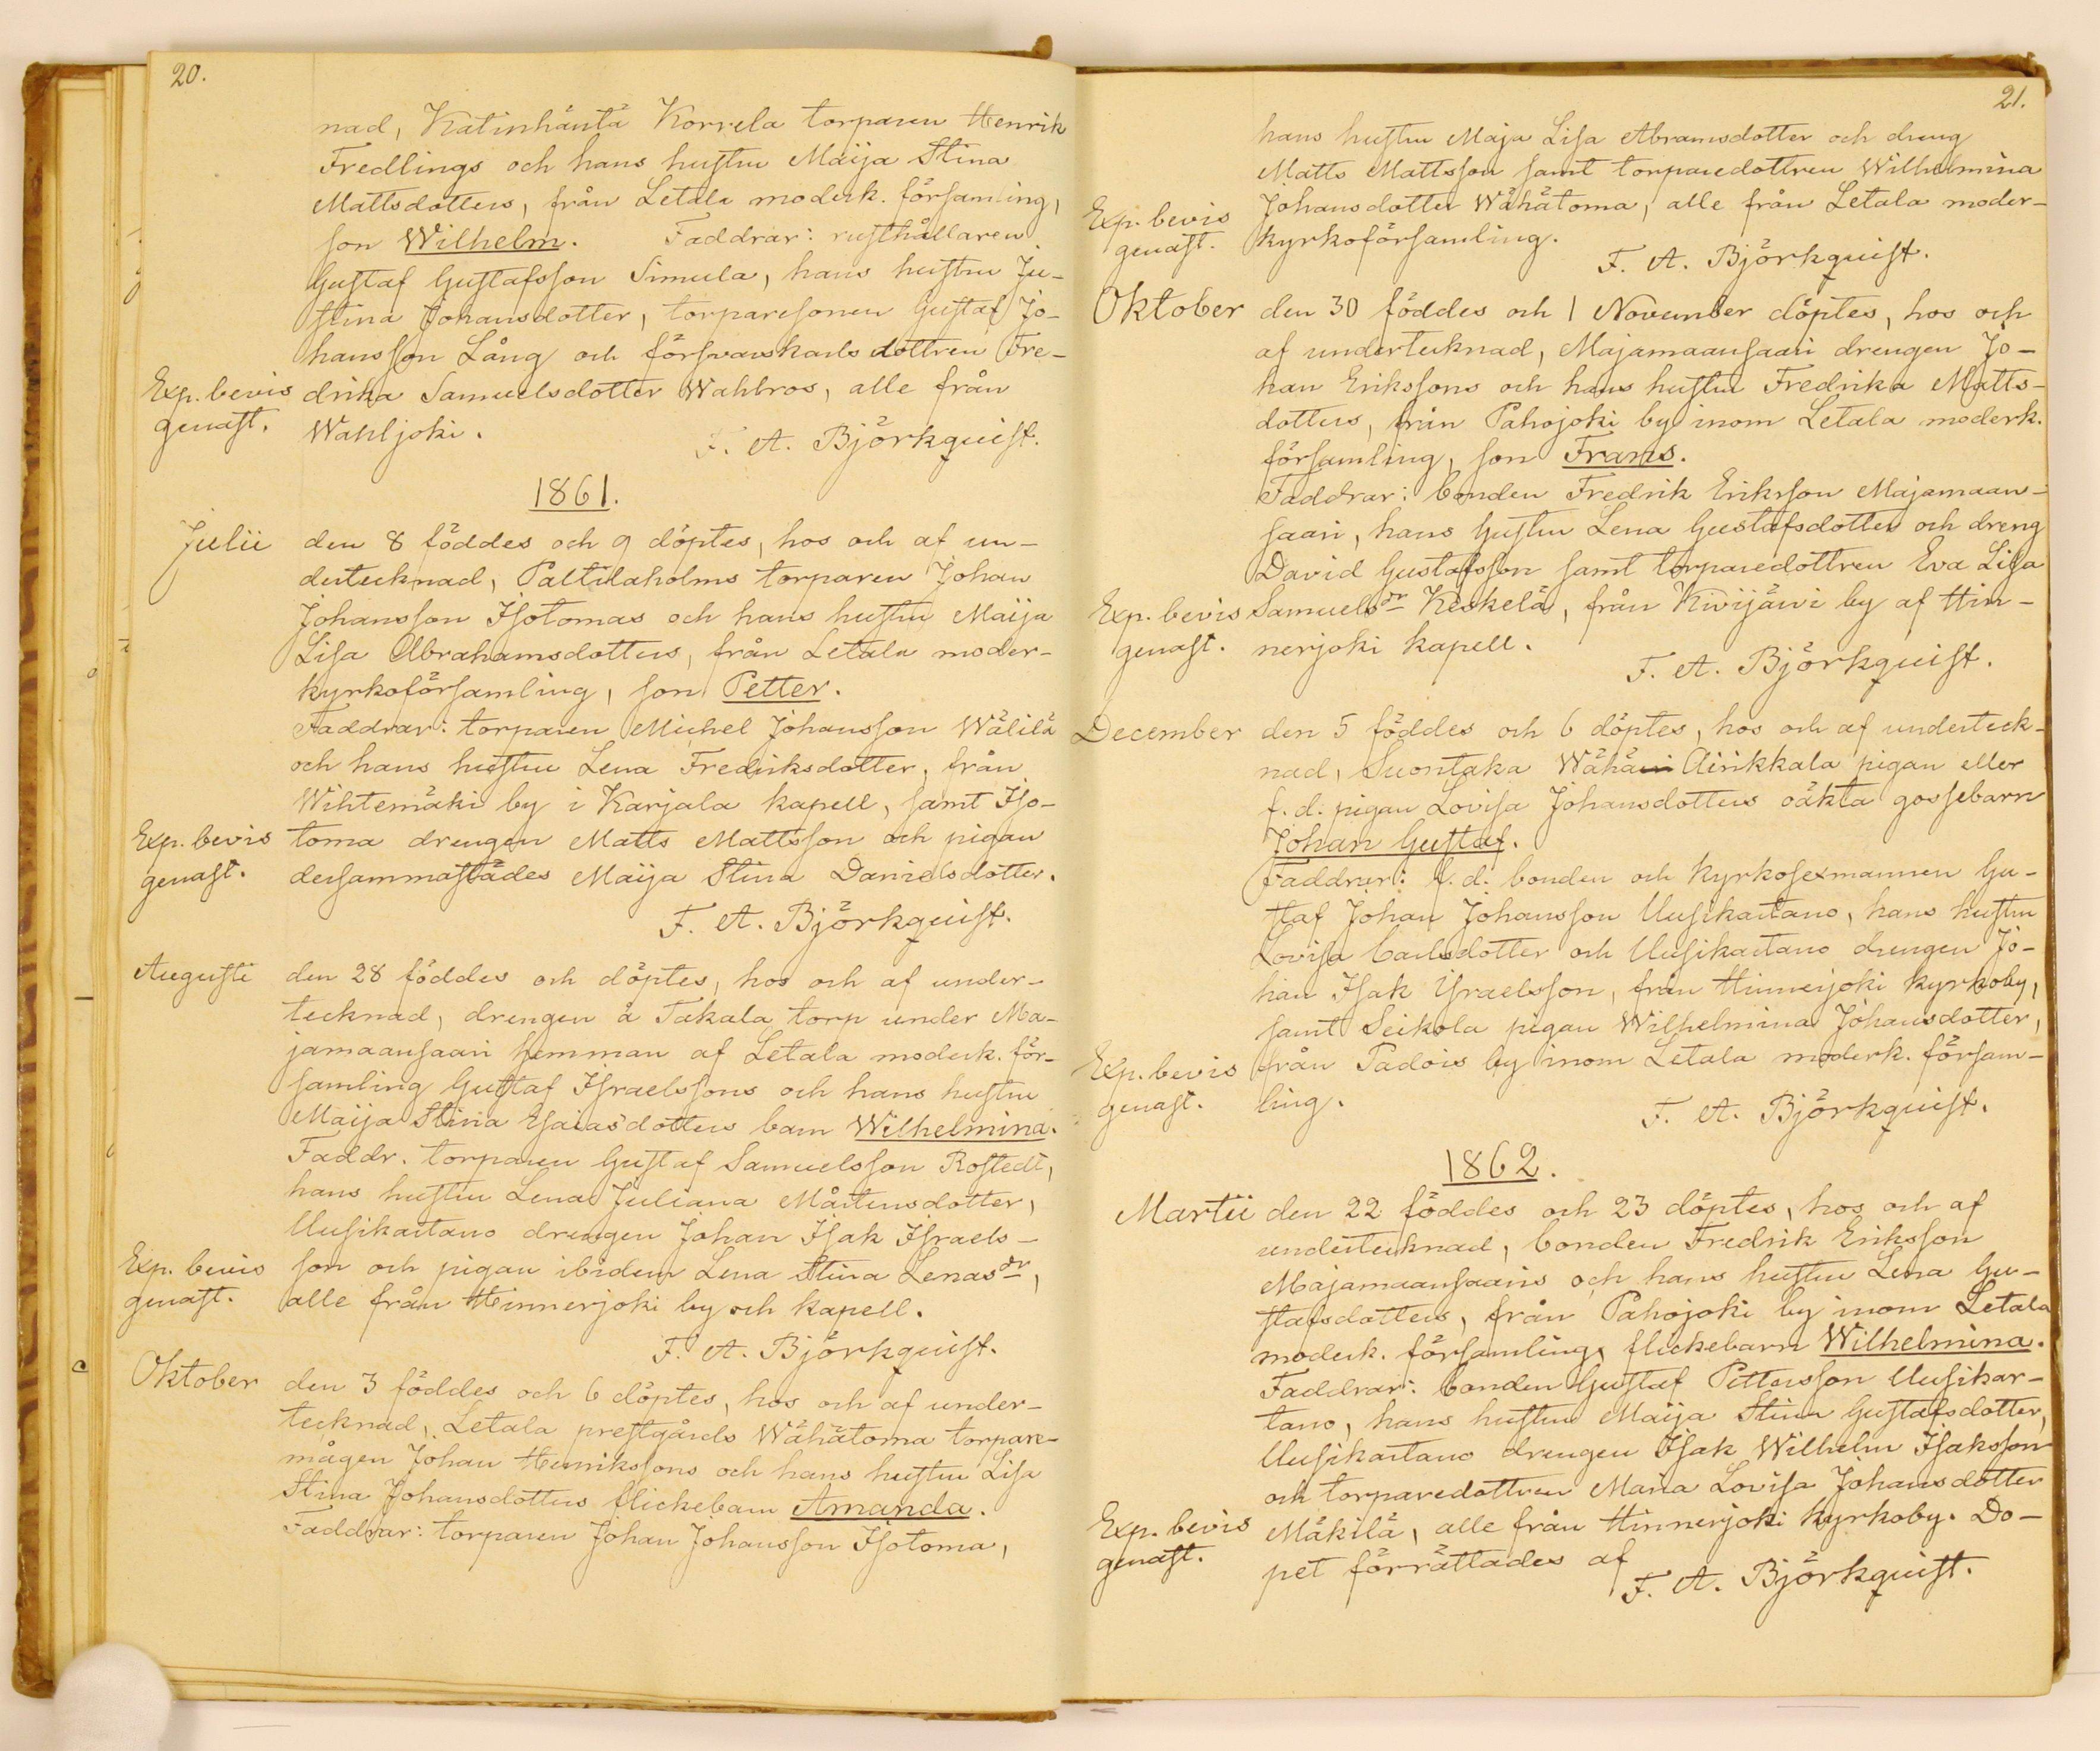 20.
nad, Katinhäntä Korvela torparen Henrik
Fredlings och hans hustru Maija Stina
Mattsdotters, från Letala moderk. församling,
son Wilhelm. Faddrar: rusthållaren
Gustaf Gustafsson Simula, hans hustru Ju-
stina Johansdotter, torparesonen Gustaf Jo-
hansson Lång och försvarskarls dottren Fre-
Exp. bevis drika Samuelsdotter Wahlros, alle från
genast. Wahljoki. F. A. Björkquist.
1861.
Julii den 8 föddes och 9 döptes, hos och af un-
dertecknad, Paltilaholms torparen Johan
Johansson Isotomas och hans hustru Maija
Lisa Abrahamsdotters, från Letala moder-
kyrkoförsamling, son Petter.
Faddrar: torparen Michel Johansson Wälilä
och hans hustru Lena Fredriksdotter, från
Wihtemäki by i Karjala kapell, samt Iso-
Exp. bevis toma drengen Matts Mattsson och pigan
genast. dersammastädes Maija Stina Danielsdotter.
F. A. Björkquist.
Augusti den 28 föddes och döptes, hos och af under-
tecknad, drengen å Takala torp under Ma-
jamaansaari hemman af Letala moderk. för-
samling Gustaf Israelssons och hans hustru
Maija Stina Esaiasdotters barn Wilhelmina.
Faddr. torparen Gustaf Samuelsson Rostedt,
hans hustru Lena Juliana Mårtensdotter,
Uusikartano drengen Johan Isak Israels-
Exp. bevis son och pigan ibidem Lena Stina Lenasdr,
genast. alle från Hinnerjoki by och kapell.
F. A. Björkquist.
Oktober den 3 föddes och 6 döptes, hos och af under-
tecknad, Letala prestgårds Wähätoma torpare-
mågen Johan Henrikssons och hans hustru Lisa
Stina Johansdotters flickebarn Amanda.
Faddrar: torparen Johan Johansson Isotoma,
21.
hans hustru Maja Lisa Abramsdotter och dreng
Matts Mattsson samt torparedottren Wilhelmina
Exp. bevis Johansdotter Wähätoma, alle från Letala moder-
genast. kyrkoförsamling.
F. A. Björkquist.
Oktober den 30 föddes och 1 November döptes, hos och
af undertecknad, Majamaansaari drengen Jo-
han Erikssons och hans hustru Fredrika Matts-
dotters, från Pahojoki by inom Letala moderk.
församling, son Frans.
Faddrar: bonden Fredrik Eriksson Majamaan-
saari, hans hustru Lena Gustafsdotter och dreng
David Gustafsson samt torparedottren Eva Lisa
Exp. bevis Samuelsdr Keskelä, från Kivijärvi by af Hin-
genast. nerjoki kapell.
F. A. Björkquist.
December den 5 föddes och 6 döptes, hos och af underteck-
nad, Suontaka Wähä Airikkala pigan eller
f. d. pigan Lovisa Johansdotters oäkta gossebarn
Johan Gustaf.
Faddrar: f. d. bonden och kyrkosexmannen Gu-
staf Johan Johansson Uusikartano, hans hustru
Lovisa Carlsdotter och Uusikartano drengen Jo-
han Isak Israelsson, från Hinnerjoki kyrkoby,
samt Seikola pigan Wilhelmina Johansdotter,
Exp. bevis från Padois by inom Letala moderk. försam-
genast. ling.
F. A. Björkquist.
1862.
Martii den 22 föddes och 23 döptes, hos och af
undertecknad, bonden Fredrik Eriksson
Majamaansaaris och hans hustru Lena Gu-
stafsdotters, från Pahojoki by inom Letala
moderk. församling, flickebarn Wilhelmina.
Faddrar: bonden Gustaf Pettersson Uusikar-
tano, hans hustru Maija Stina Gustafsdotter,
Uusikartano drengen Isak Wilhelm Isaksson
och torparedottren Maria Lovisa Johansdotter
Exp. bevis Mäkilä, alle från Hinnerjoki kyrkoby. Do-
genast. pet förrättades af
F. A. Björkquist.